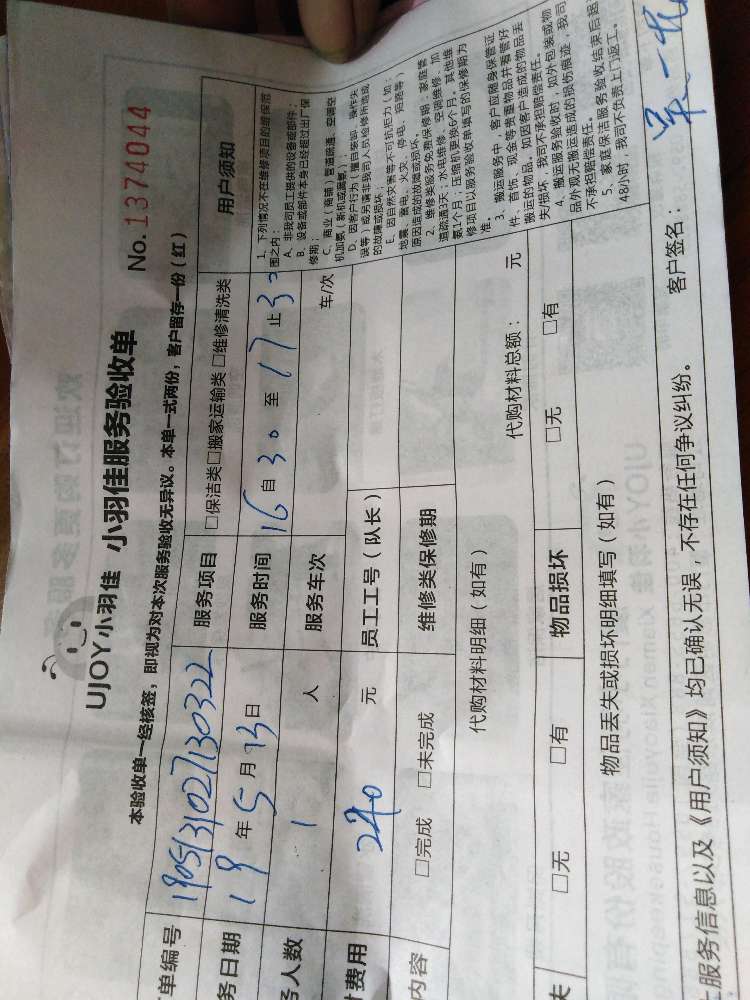 UJOY小羽佳 小羽佳服务验收单
No. 1374044
本验收单一经核签，即视为对本次服务验收无异议。本单一式两份，客户留存一份（红）
单编号 1905131027130322 服务项目 □保洁类□搬家运输类 □维修清洗类 用户须知
务日期 19 年 5 月 13 日 服务时间 16 自 30 至 17 止 30
务人数 1 人 服务车次 车/次
费用 240 元 员工工号（队长）
内容 □完成 □未完成 维修类保修期
1、下列情况不在维修项目的维保范
围之内：
A、非我司员工提供的设备或部件；
B、设备或部件本身已经超过出厂保
修期；
C、商业（商铺）管道疏通、空调空
机加氨（新机或漏氨）；
D、因客户行为（擅自装卸、操作失
误等）或另请非我司人员检修所造成
的故障或损坏；
E、因自然灾害等不可抗拒力（如：
地震、雷电、火灾、停电、短路等）
原因造成的故障或损坏。
2、维修类服务免费保修期：家庭管
道疏通3天；水电维修、空调维修、加
氨1个月；压缩机更换6个月。其他维
修项目以服务验收单填写的保修期为
准。
3、搬运服务中，客户应随身保管证
件、首饰、现金等贵重物品并看管好
搬运的物品。如因客户造成的物品丢
失/损坏，我司不承担赔偿责任。
4、搬运服务验收时，如外包装或物
品外观无搬运造成的损伤痕迹，我司
不承担赔偿责任。
5、家庭保洁服务验收结束后超
48小时，我司不负责上门返工。
代购材料明细（如有） 代购材料总额： 元
失 □无 □有 物品损坏 □无 □有
物品丢失或损坏明细填写（如有）
上服务信息以及《用户须知》均已确认无误，不存在任何争议纠纷。 客户签名：